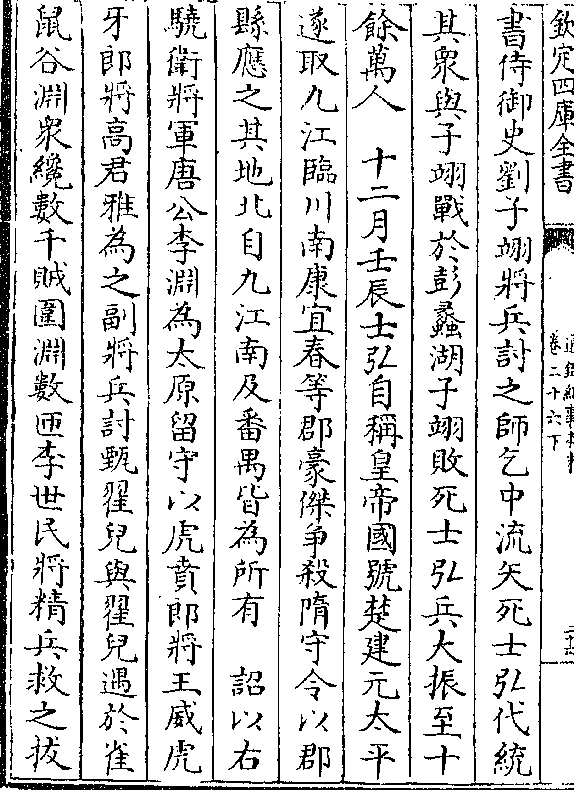 欽定四庫全書
卷二十六下
書侍御史劉子翊將兵討之師乞中流矢死士弘代統
其衆與子翊戰於彭蠡湖子翊敗死士弘兵大振至十
餘萬人　十二月壬辰士弘自稱皇帝國號楚建元太平
遂取九江臨川南康宜春等郡豪傑爭殺隋守令以郡
縣應之其地北自九江南及番禺皆為所有　詔以右
驍衛將軍唐公李淵為太原留守以虎賁郎將王威虎
牙郎將高君雅為之副將兵討甄翟兒與翟兒遇於雀
鼠谷淵衆纔數千賊圍淵數匝李世民將精兵救之拔